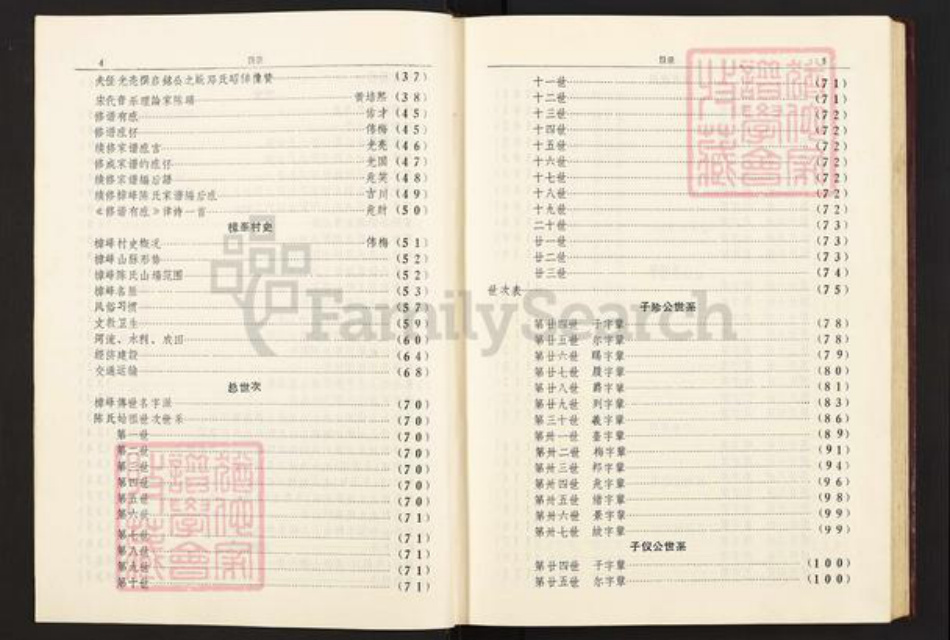 4 目录
(37)
宋代音乐理论家陈旸 黄培熙 (38)
修谱有感 佑才 (45)
修谱感怀 伟梅 (45)
续修家谱感言 光亮 (46)
修成家谱的感怀 光国 (47)
续修宗谱编后语 (48)
续修樟峰陈氏家谱编后感 吉川 (49)
《修谱有感》律诗一首 (50)
樟峰村史
樟峰村史概况 伟梅 (51)
樟峰山脉形势 (52)
樟峰陈氏山场范围 (52)
樟峰名胜 (53)
风俗习惯 (57)
文教卫生 (59)
河流、水利、农田 (60)
经济建设 (64)
交通运输 (68)
总世次
樟峰传世名字派 (70)
陈氏始祖世次世系 (70)
第一世 (70)
第二世 (70)
第三世 (70)
第四世 (70)
第五世 (70)
第六世 (71)
第七世 (71)
第八世 (71)
第九世 (71)
第十世 (71)
目录 5
十一世 (71)
十二世 (71)
十三世 (72)
十四世 (72)
十五世 (72)
十六世 (72)
十七世 (72)
十八世 (72)
十九世 (72)
二十世 (73)
廿一世 (73)
廿二世 (73)
廿三世 (74)
世次表 (75)
公世系
第廿四世 子字辈 (78)
第廿五世 尔字辈 (78)
第廿六世 赐字辈 (79)
第廿七世 殷字辈 (80)
第廿八世 爵字辈 (81)
第廿九世 列字辈 (83)
第三十世 羲字辈 (86)
第卅一世 字辈 (89)
第卅二世 梅字辈 (91)
第卅三世 邦字辈 (94)
第卅四世 兆字辈 (96)
第卅五世 绪字辈 (98)
第卅六世 景字辈 (99)
第卅七世 字辈 (99)
子仪公世系
第廿四世 子字辈 (100)
第廿五世 尔字辈 (100)
FamilySearch